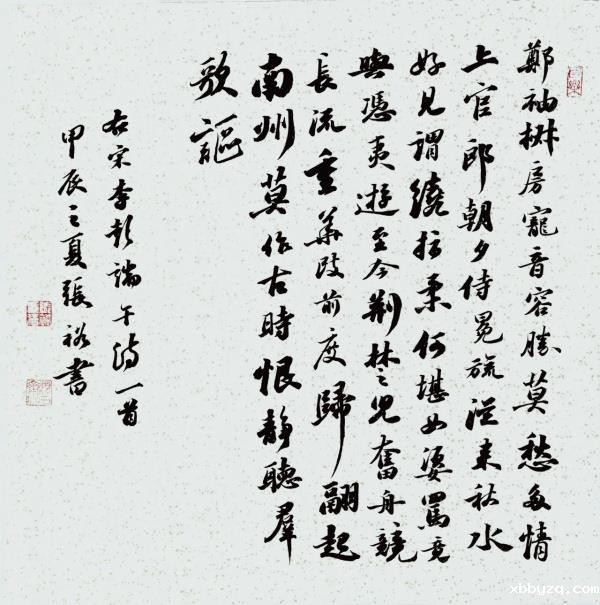 鄭袖椒房寵音容勝莫愁多情
上官郎朝夕侍冕旒從來秋水
好見謂繞指柔何堪女嬃罵竟
與憑夷遊至今荊楚兒奮舟競
長流重華前度歸起
南州莫作古時恨靜聽羣
歌謳
右宋李彭端午詩一首
甲辰之夏張裕書
xbbyzq.com